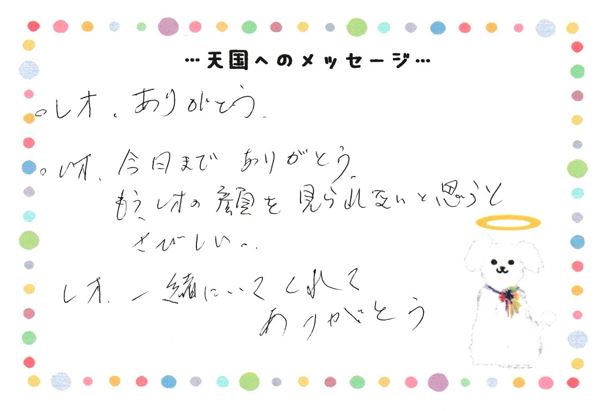 …天国へのメッセージ…
。レオ、ありがとう。
。レオ、今日まで ありがとう。
もう、レオの顔を見られないと思うと
さびしい。
レオ、一緒にいてくれて
ありがとう